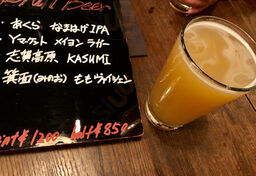 Beer
・あくら なまはげIPA
・Yマーケット メイヨン ラガー
・志賀高原 KASUMI
・箕面(みのお) ももヴァイツェン
¥1200 half ¥850